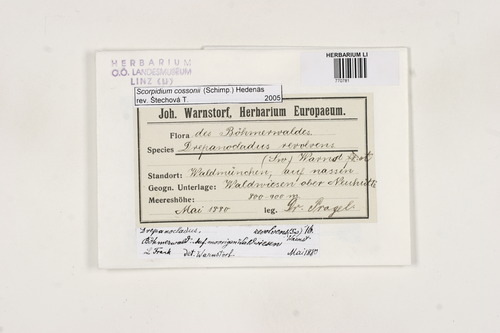 HERBARIUM
O.Ö. LANDESMUSEUM
LINZ (D)
HERBARIUM LI
770781
Scorpidium cossonii (Schimp.) Hedenäs
rev. Štechová T. 2005
Joh. Warnstorf, Herbarium Europaeum.
Flora des Böhmerwaldes
Species Drepanocladus revolvens
(Sw.) Warnst.
Standort: Waldmünchen, auf nassen
Geogn. Unterlage: Waldwiesen ober Neuhütte
Meereshöhe: 800-900 m
Mai 1880 leg. Dr.
Drepanocladus revolvens (Sw)
Böhmerwald: Auf moorigen Waldwiesen Warnst
L. Frank det. Warnstorf. Mai 1880